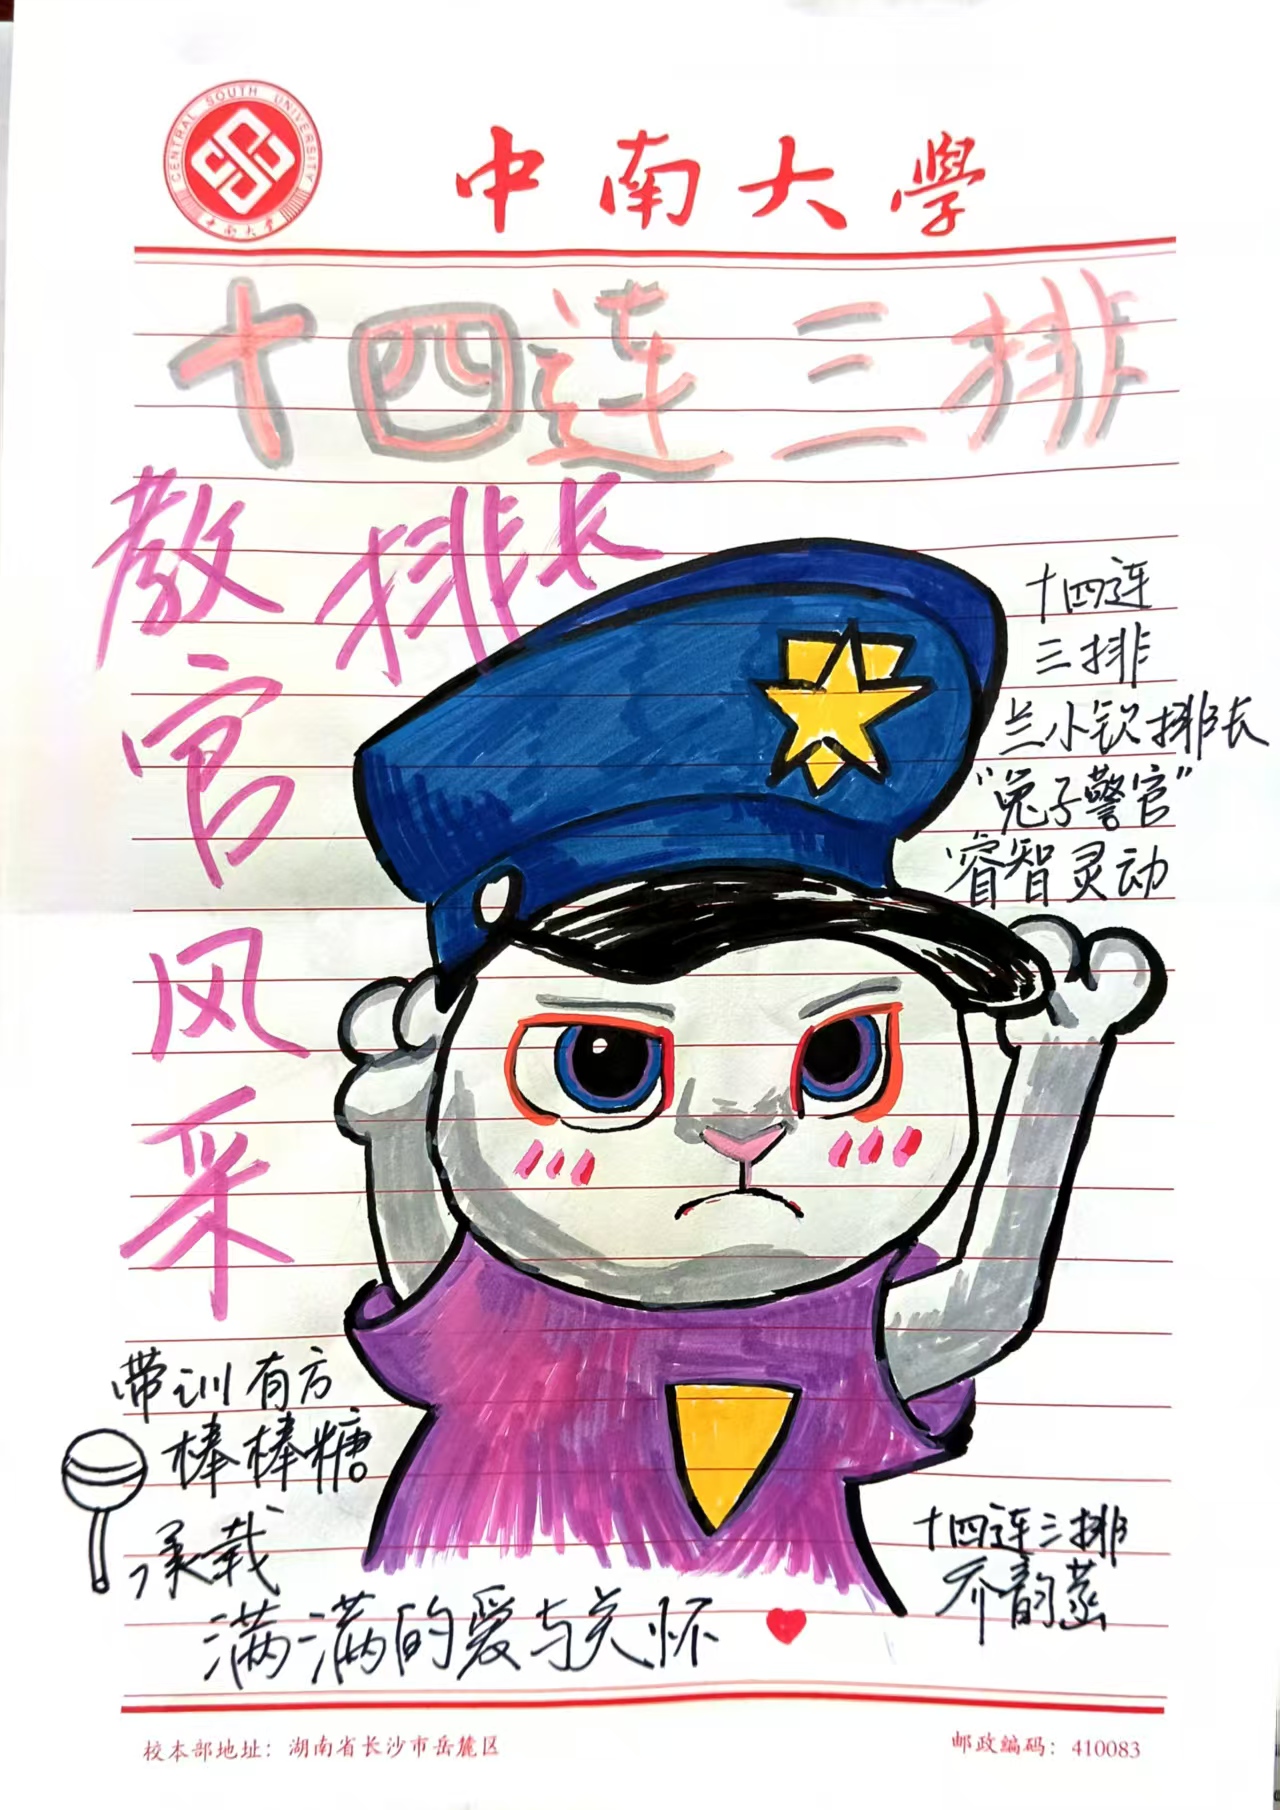 CENTRAL SOUTH UNIVERSITY
中南大学
中南大學
十四连三排
教官风采
排长
十四连
三排
兰小钦排长
“兔子警官”
睿智灵动
带训有方
棒棒糖
承载
满满的爱与关怀
十四连三排
乔韵
校本部地址：湖南省长沙市岳麓区
邮政编码：410083